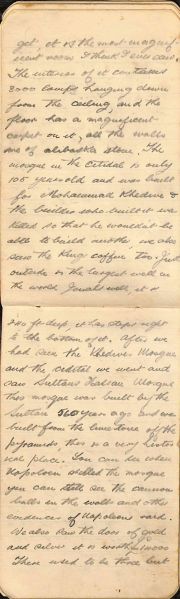 get, it is the most magnif
icent room I think I ever saw.
The interior of it contains
3000 lamps hanging down
from the ceiling, and the
floor has a magnificent
carpet on it, all the walls
are of alabaster stone. The
mosque in the Citidal is only
105 years old and was built
for Mohammad Khedive &
the builder who built it was
killed so that he wouldn't be
able to build another, we also
saw the Kings coffin too. Just
outside is the largest well in
the world, Josephs well, it is
280 ft deep, it has steps right
to the bottom of it. After we
had seen the Khedives Mosque
and the citidal we went and
saw Sultans Hassan Mosque
this mosque was built by the
Sultan 560 years ago and was
built from the lime stone of the
pyramids this is a very histor
ical place. You can see where
Napoleon shelled the mosque
you can still see the cannon
balls in the walls and other
evidences of Napoleons raid.
We also saw the door of gold
and silver it is worth
There used to be three but